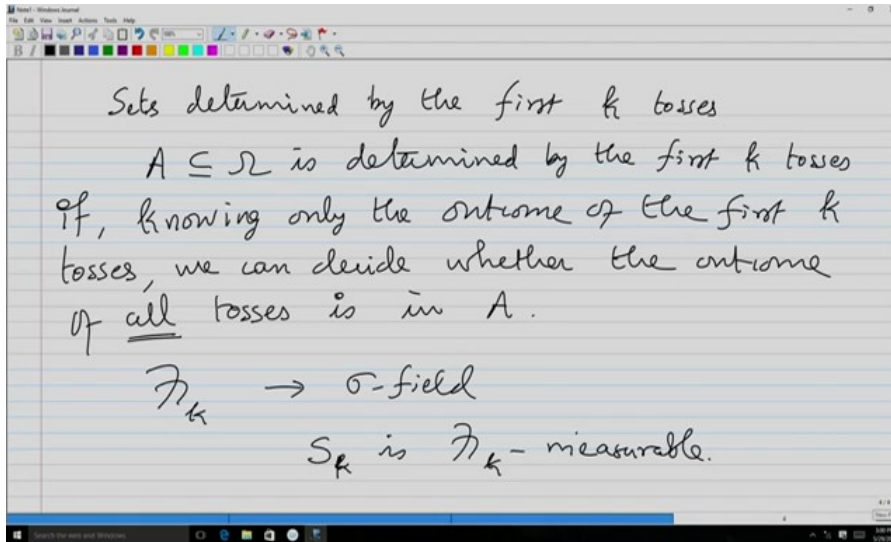 Note1 - Windows Journal
File Edit View Insert Actions Tools Help
Sets determined by the first k tosses
A ⊆ Ω is determined by the first k tosses
if, knowing only the outcome of the first k
tosses, we can decide whether the outcome
of all tosses is in A.
ℱₖ → σ-field
Sₖ is ℱₖ - measurable.
4/4
Search the web and Windows